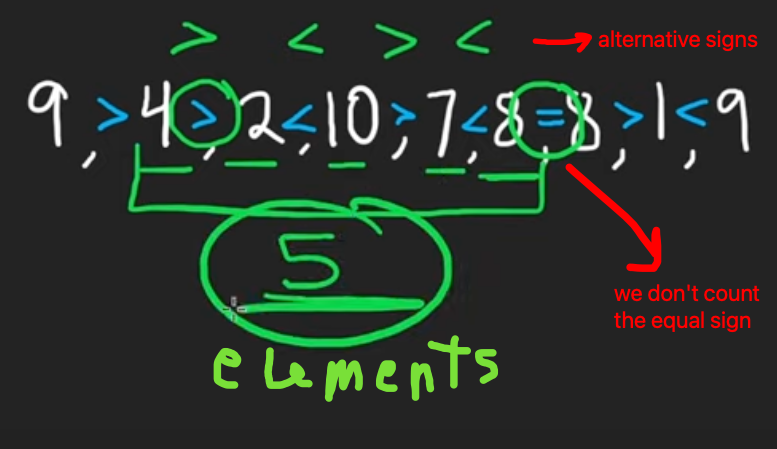 > < > < → alternative signs
9, > 4 >, 2 <, 10 >, 7 <, 8 =, 8 >, 1 <, 9
5
elements
we don't count
the equal sign